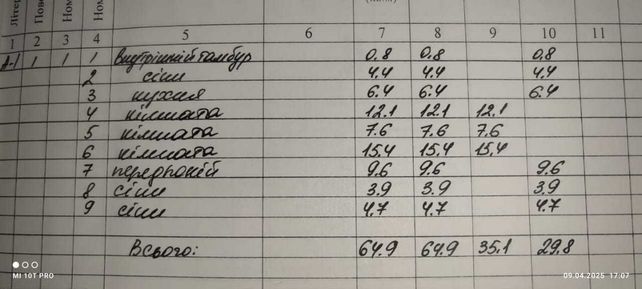 Літер
Пове
Ном
Ном
1 2 3 4 5 6 7 8 9 10 11
А-1 1 1 1 внутрішній тамбур 0.8 0.8 0.8
2 сіни 4.4 4.4 4.4
3 кухня 6.4 6.4 6.4
4 кімната 12.1 12.1 12.1
5 кімната 7.6 7.6 7.6
6 кімната 15.4 15.4 15.4
7 передпокій 9.6 9.6 9.6
8 сіни 3.9 3.9 3.9
9 сіни 4.7 4.7 4.7
Всього: 64.9 64.9 35.1 29.8
MI 10T PRO
09.04.2025 17:07